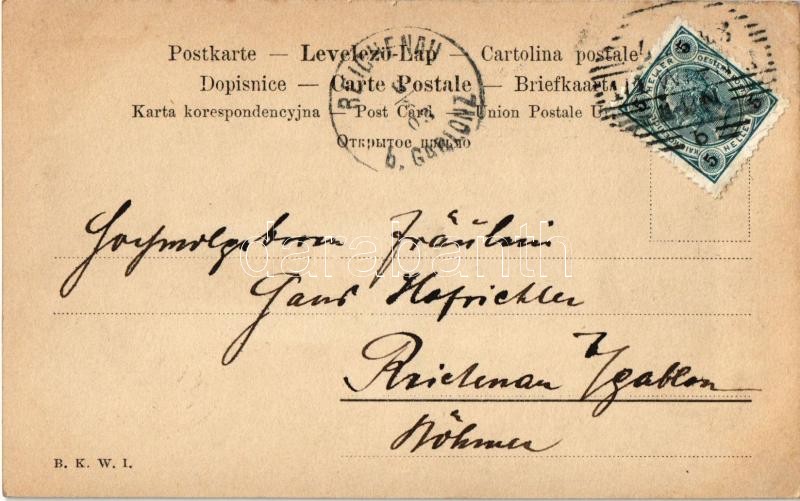 Postkarte — Levelezö-Lap — Cartolina postale
Dopisnice — Carte Postale — Briefkaart
Karta korespondencyjna — Post Card — Union Postale U
Открытое письмо
REICHENAU
b. GABLONZ
5 HELLER 5
5 HELLER 5
Fräulein
Hans Hofrichler
Reichenau b/gablon
Böhmen
darabanth
B. K. W. I.